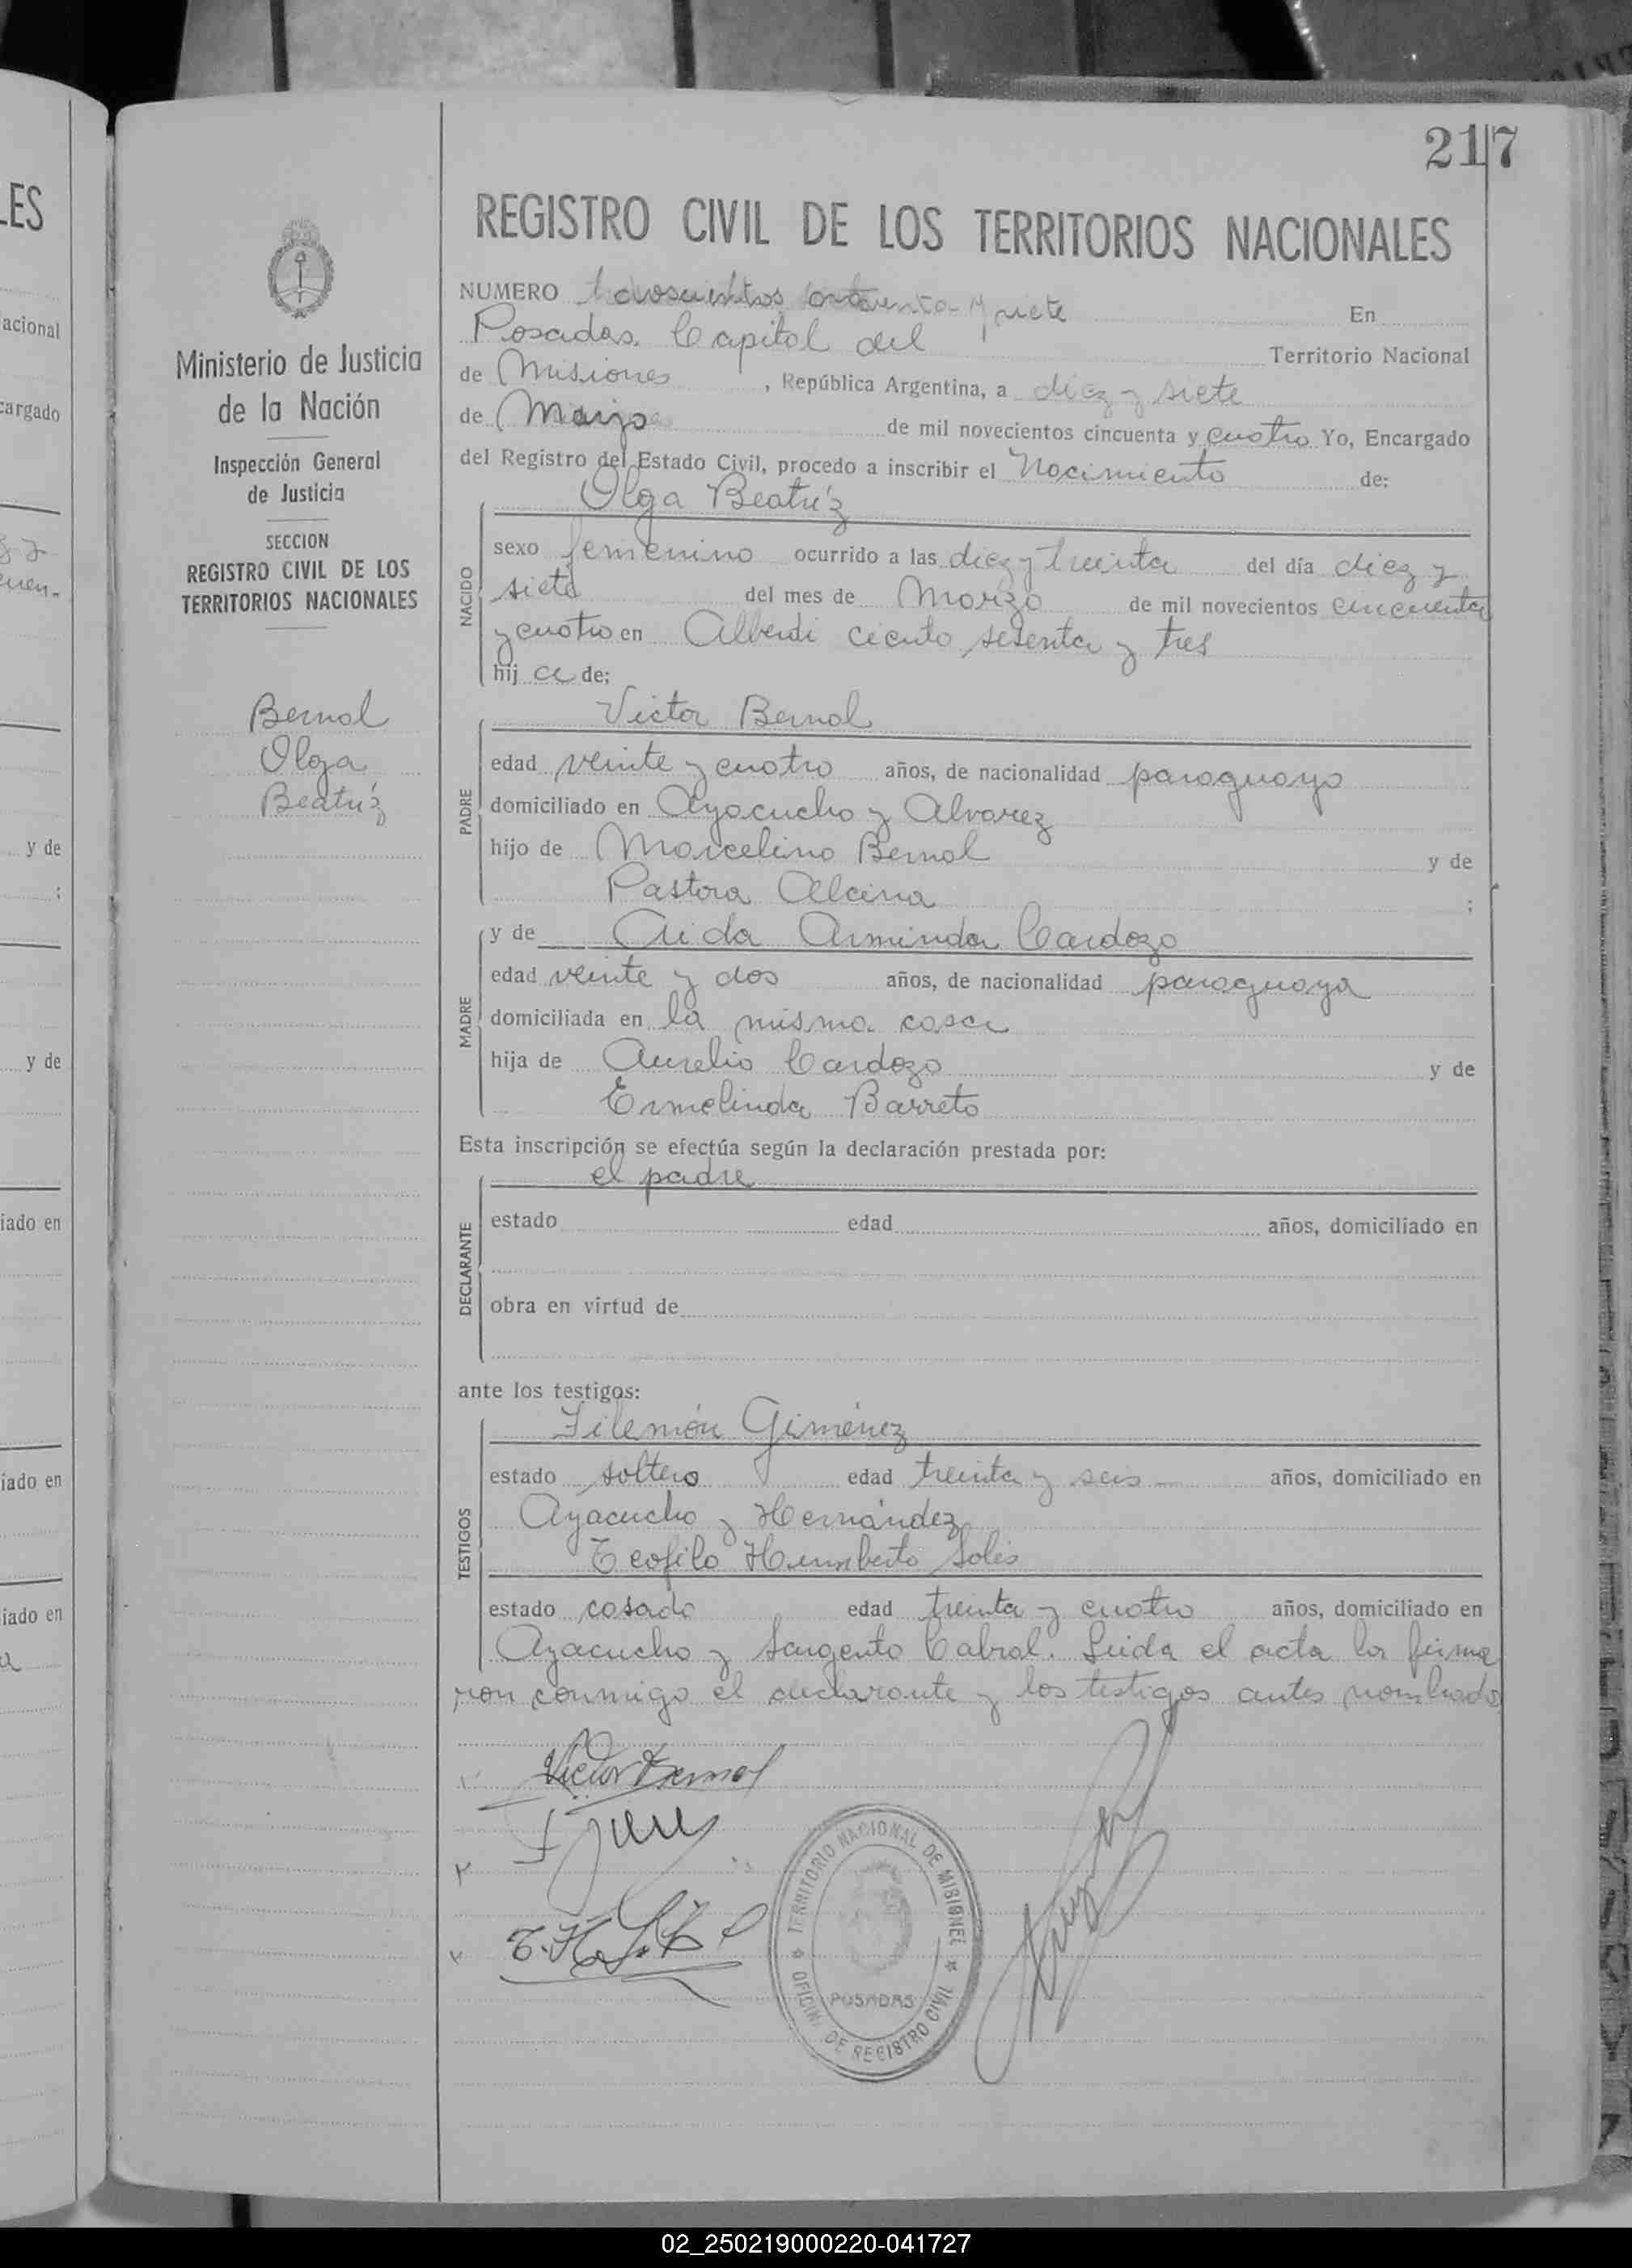 LES
acional
cargado
y de
;
y de
iado en
iado en
iado en
217
Ministerio de Justicia
de la Nación
Inspección General
de Justicia
SECCION
REGISTRO CIVIL DE LOS
TERRITORIOS NACIONALES
Bernal
Olga
Beatríz
REGISTRO CIVIL DE LOS TERRITORIOS NACIONALES
NUMERO doscientos y siete En
Posadas. Capital del Territorio Nacional
de Misiones, República Argentina, a diez y siete
de Marzo de mil novecientos cincuenta y cuatro Yo, Encargado
del Registro del Estado Civil, procedo a inscribir el Nacimiento de:
Olga Beatríz
NACIDO
sexo femenino ocurrido a las diez y treinta del día diez y
siete del mes de Marzo de mil novecientos cincuenta
y cuatro en Alberdi ciento setenta y tres
hija de;
Victor Bernal
PADRE
edad veinte y cuatro años, de nacionalidad paraguayo
domiciliado en Ayacucho y Alvarez
hijo de Marcelino Bernal y de
Pastora Alcina ;
MADRE
y de Aida Arminda Cardozo
edad veinte y dos años, de nacionalidad paraguaya
domiciliada en la misma casa
hija de Aurelio Cardozo y de
Ermelinda Barreto
Esta inscripción se efectúa según la declaración prestada por:
el padre
DECLARANTE
estado edad años, domiciliado en
obra en virtud de
ante los testigos:
Filemón Giménez
TESTIGOS
estado soltero edad treinta y seis — años, domiciliado en
Ayacucho y Hernández
Teofilo Humberto Solis
estado casado edad treinta y cuatro años, domiciliado en
Ayacucho y Sargento Cabral. Leida el acta la firma
ron conmigo el declarante y los testigos antes nombrados
Victor Bernal
TERRITORIO NACIONAL DE MISIONES
POSADAS
OFICINA DE REGISTRO CIVIL
02_250219000220-041727